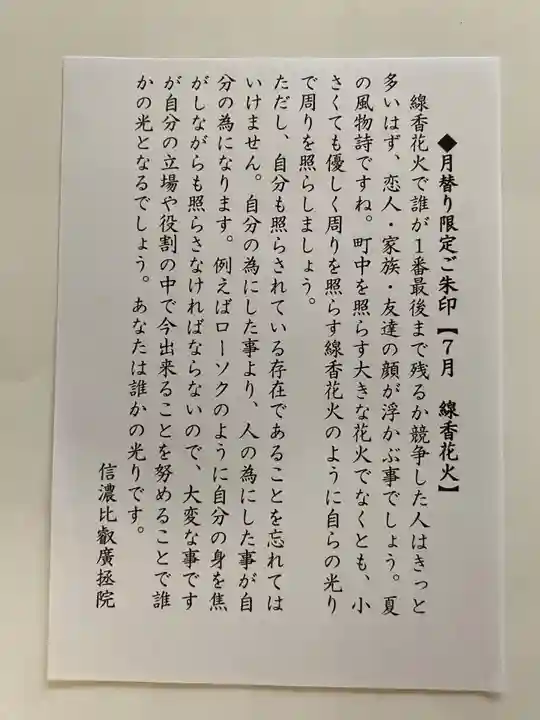 ◆月替り限定ご朱印【７月　線香花火】
線香花火で誰が１番最後まで残るか競争した人はきっと
多いはず、恋人・家族・友達の顔が浮かぶ事でしょう。夏
の風物詩ですね。町中を照らす大きな花火でなくとも、小
さくても優しく周りを照らす線香花火のように自らの光り
で周りを照らしましょう。
ただし、自分も照らされている存在であることを忘れては
いけません。自分の為にした事より、人の為にした事が自
分の為になります。例えばローソクのように自分の身を焦
がしながらも照らさなければならないので、大変な事です
が自分の立場や役割の中で今出来ることを努めることで誰
かの光となるでしょう。あなたは誰かの光りです。
信濃比叡廣拯院